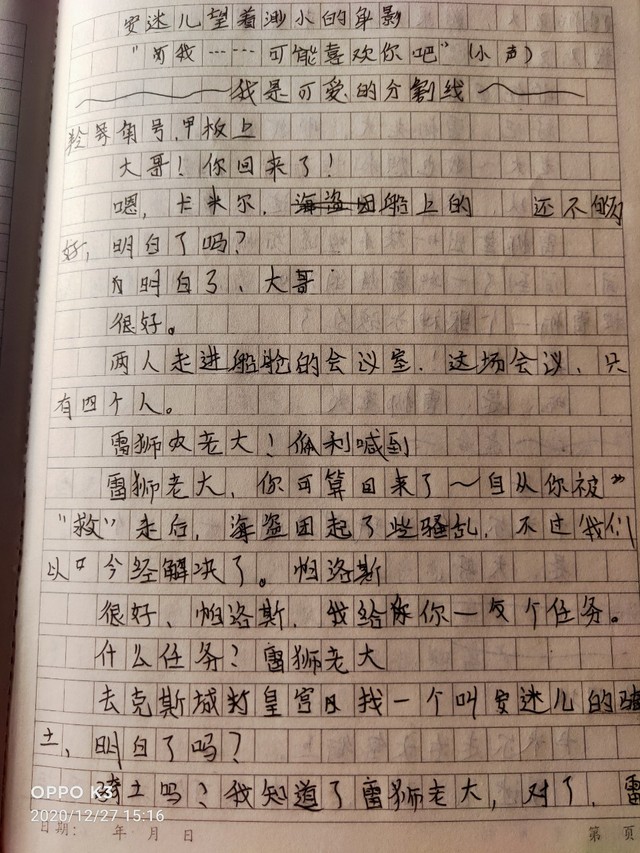 安迷儿望着渺小的身影
"可我……可能喜欢你吧"(小声)
我是可爱的分割线
羚羊角号,甲板上
大哥!你回来了!
嗯,卡米尔,海盗团船上的 还不够
好,明白了吗?
明白了、大哥
很好。
两人走进船舱的会议室.这场会议、只
有四个人。
雷狮老大!佩利喊到
雷狮老大,你可算回来了~自从你被"
"救"走后,海盗团起了些骚乱,不过我们
以今经解决了。帕洛斯
很好、帕洛斯,我给你一个任务。
什么任务?雷狮老大
去克斯城封皇宫找一个叫安迷儿的骑
士、明白了吗?
骑士吗?我知道了雷狮老大,对了,雷
OPPO K3
2020/12/27 15:16
日期: 年 月 日
第 页